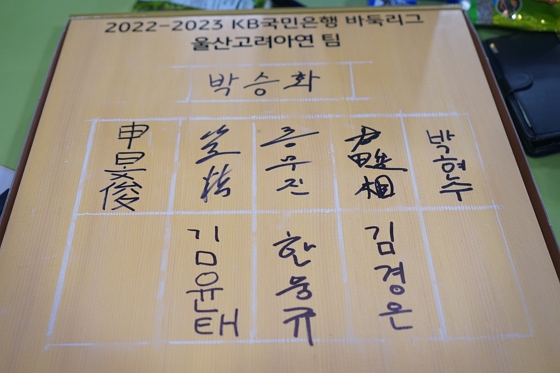 2022-2023 KB국민은행 바둑리그
울산고려아연 팀
박승화
申旻俊
홍무진
尹畯相
박현수
김윤태
한웅규
김경은